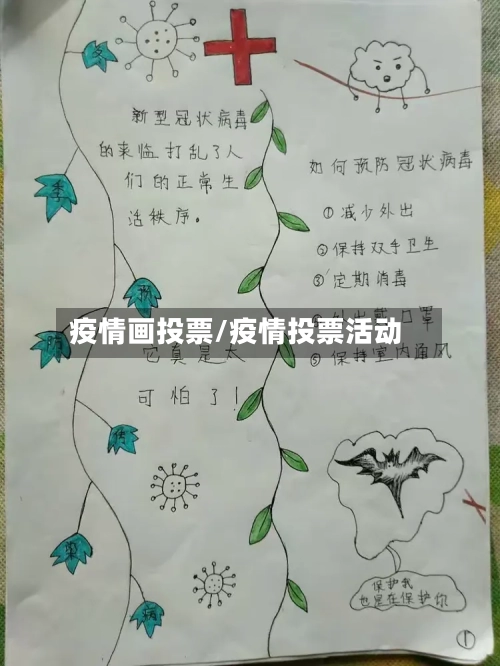 冬
季
预
防
传
染
病
新型冠状病毒
的来临打乱了人
们的正常生
活秩序。
它真是太
可怕了!
如何预防冠状病毒
①减少外出
②保持双手卫生
③定期消毒
口罩
⑤保持室内通风
疫情画投票/疫情投票活动
保护我
也是在保护你
①